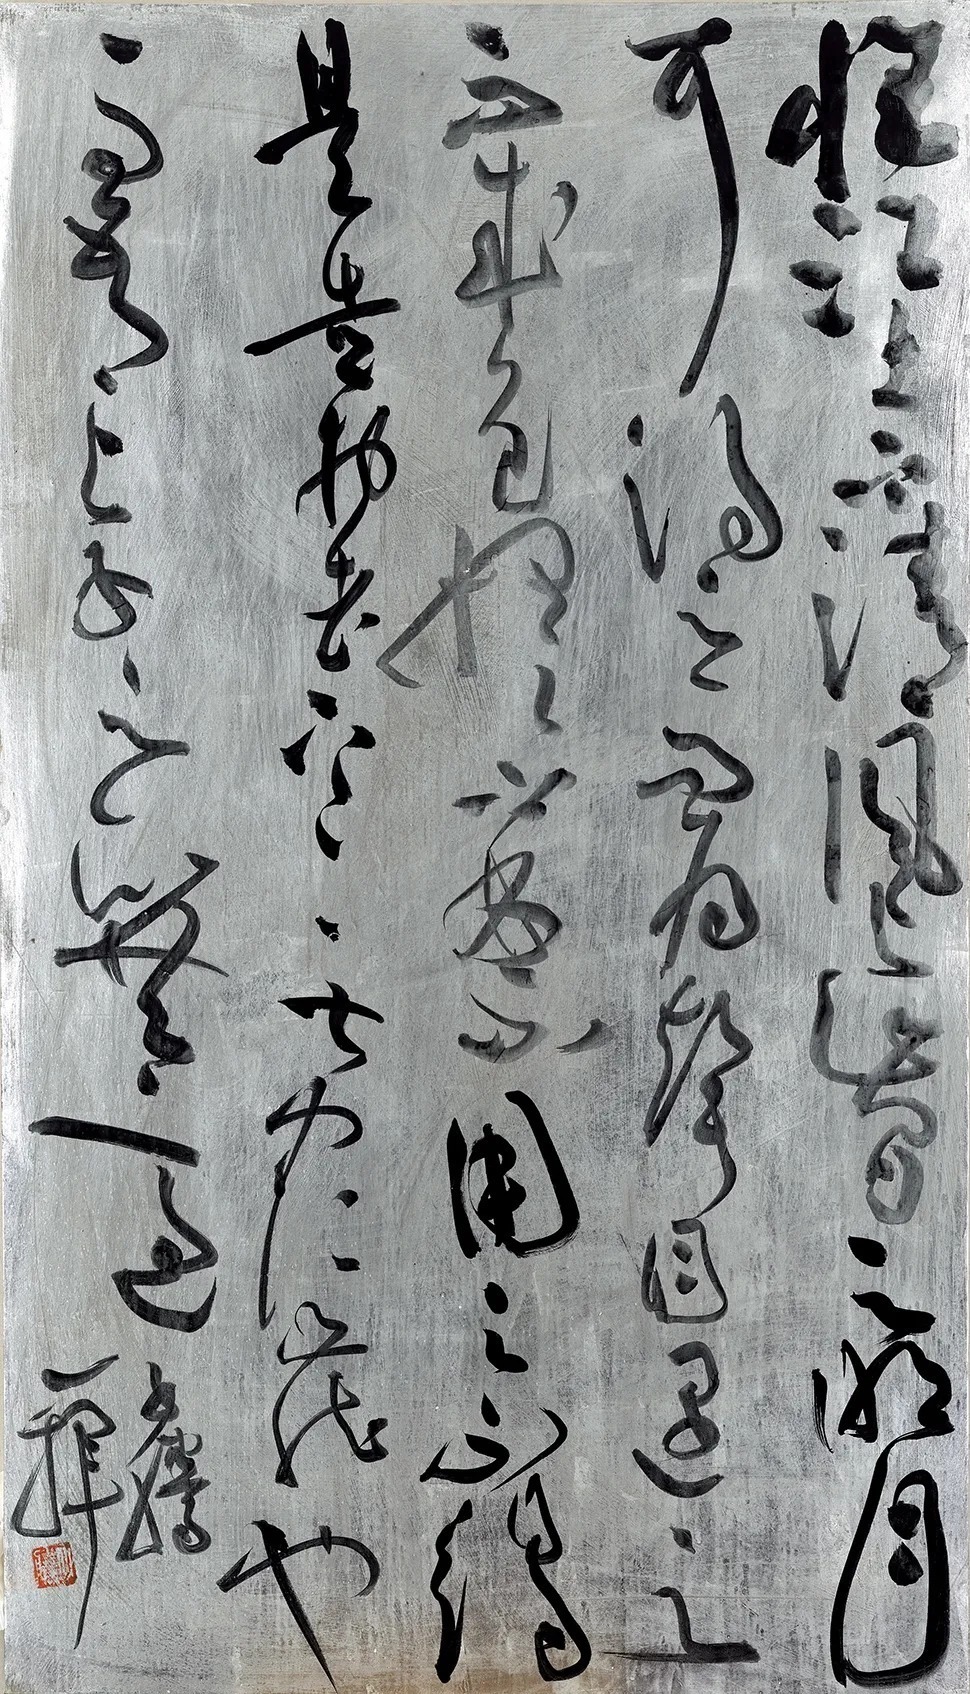 惟江上之清風與山間之明月
耳得之而為聲目遇之
而成色取之無禁用之不竭
是造物者之無盡藏也
而吾與子之所共